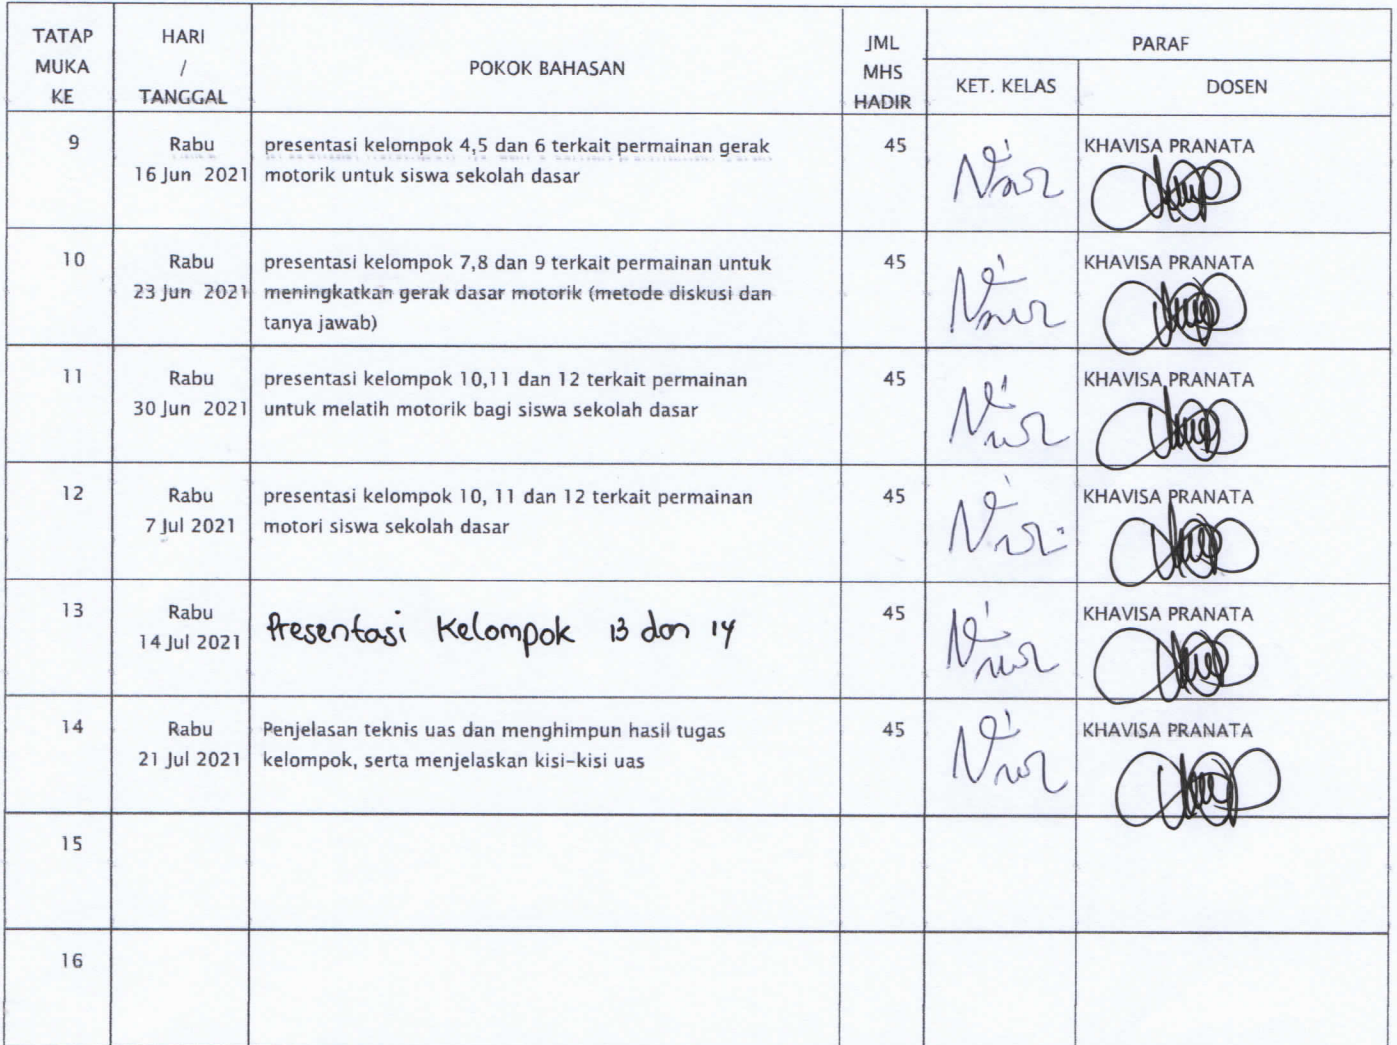 TATAP MUKA KE
HARI / TANGGAL
POKOK BAHASAN
JML MHS HADIR
PARAF
KET. KELAS
DOSEN
9
Rabu
16 Jun 2021
presentasi kelompok 4,5 dan 6 terkait permainan gerak
motorik untuk siswa sekolah dasar
45
KHAVISA PRANATA
10
Rabu
23 Jun 2021
presentasi kelompok 7,8 dan 9 terkait permainan untuk
meningkatkan gerak dasar motorik (metode diskusi dan
tanya jawab)
45
KHAVISA PRANATA
11
Rabu
30 Jun 2021
presentasi kelompok 10,11 dan 12 terkait permainan
untuk melatih motorik bagi siswa sekolah dasar
45
KHAVISA PRANATA
12
Rabu
7 Jul 2021
presentasi kelompok 10, 11 dan 12 terkait permainan
motori siswa sekolah dasar
45
KHAVISA PRANATA
13
Rabu
14 Jul 2021
Presentasi Kelompok 13 dan 14
45
KHAVISA PRANATA
14
Rabu
21 Jul 2021
Penjelasan teknis uas dan menghimpun hasil tugas
kelompok, serta menjelaskan kisi-kisi uas
45
KHAVISA PRANATA
15
16